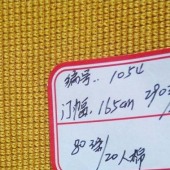 编号:1054
门幅:165cm 290
80涤/20人棉